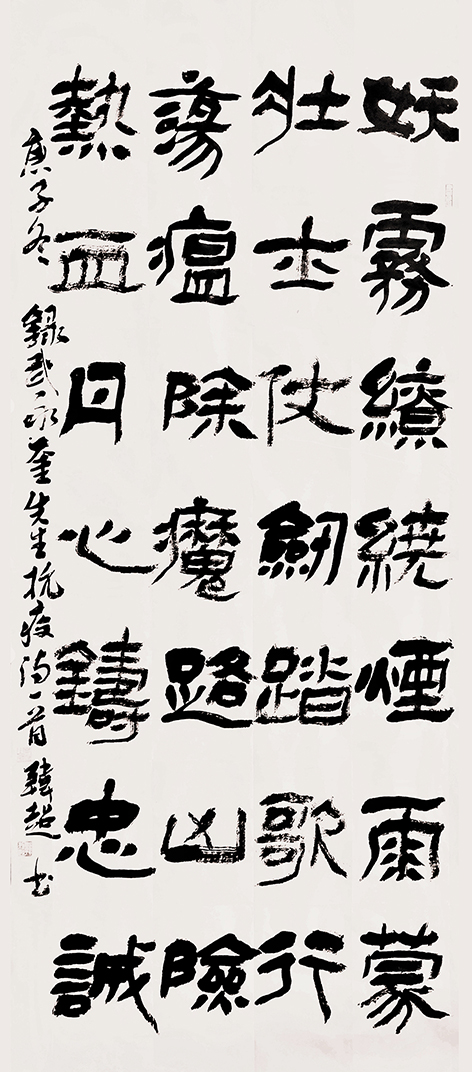 妖霧繽繞煙雨蒙
壯士仗劒踏歌行
蕩瘟除魔路凶險
熱血丹心鑄忠誠
庚子冬 錄武永奎先生抗疫诗一首 韓超书